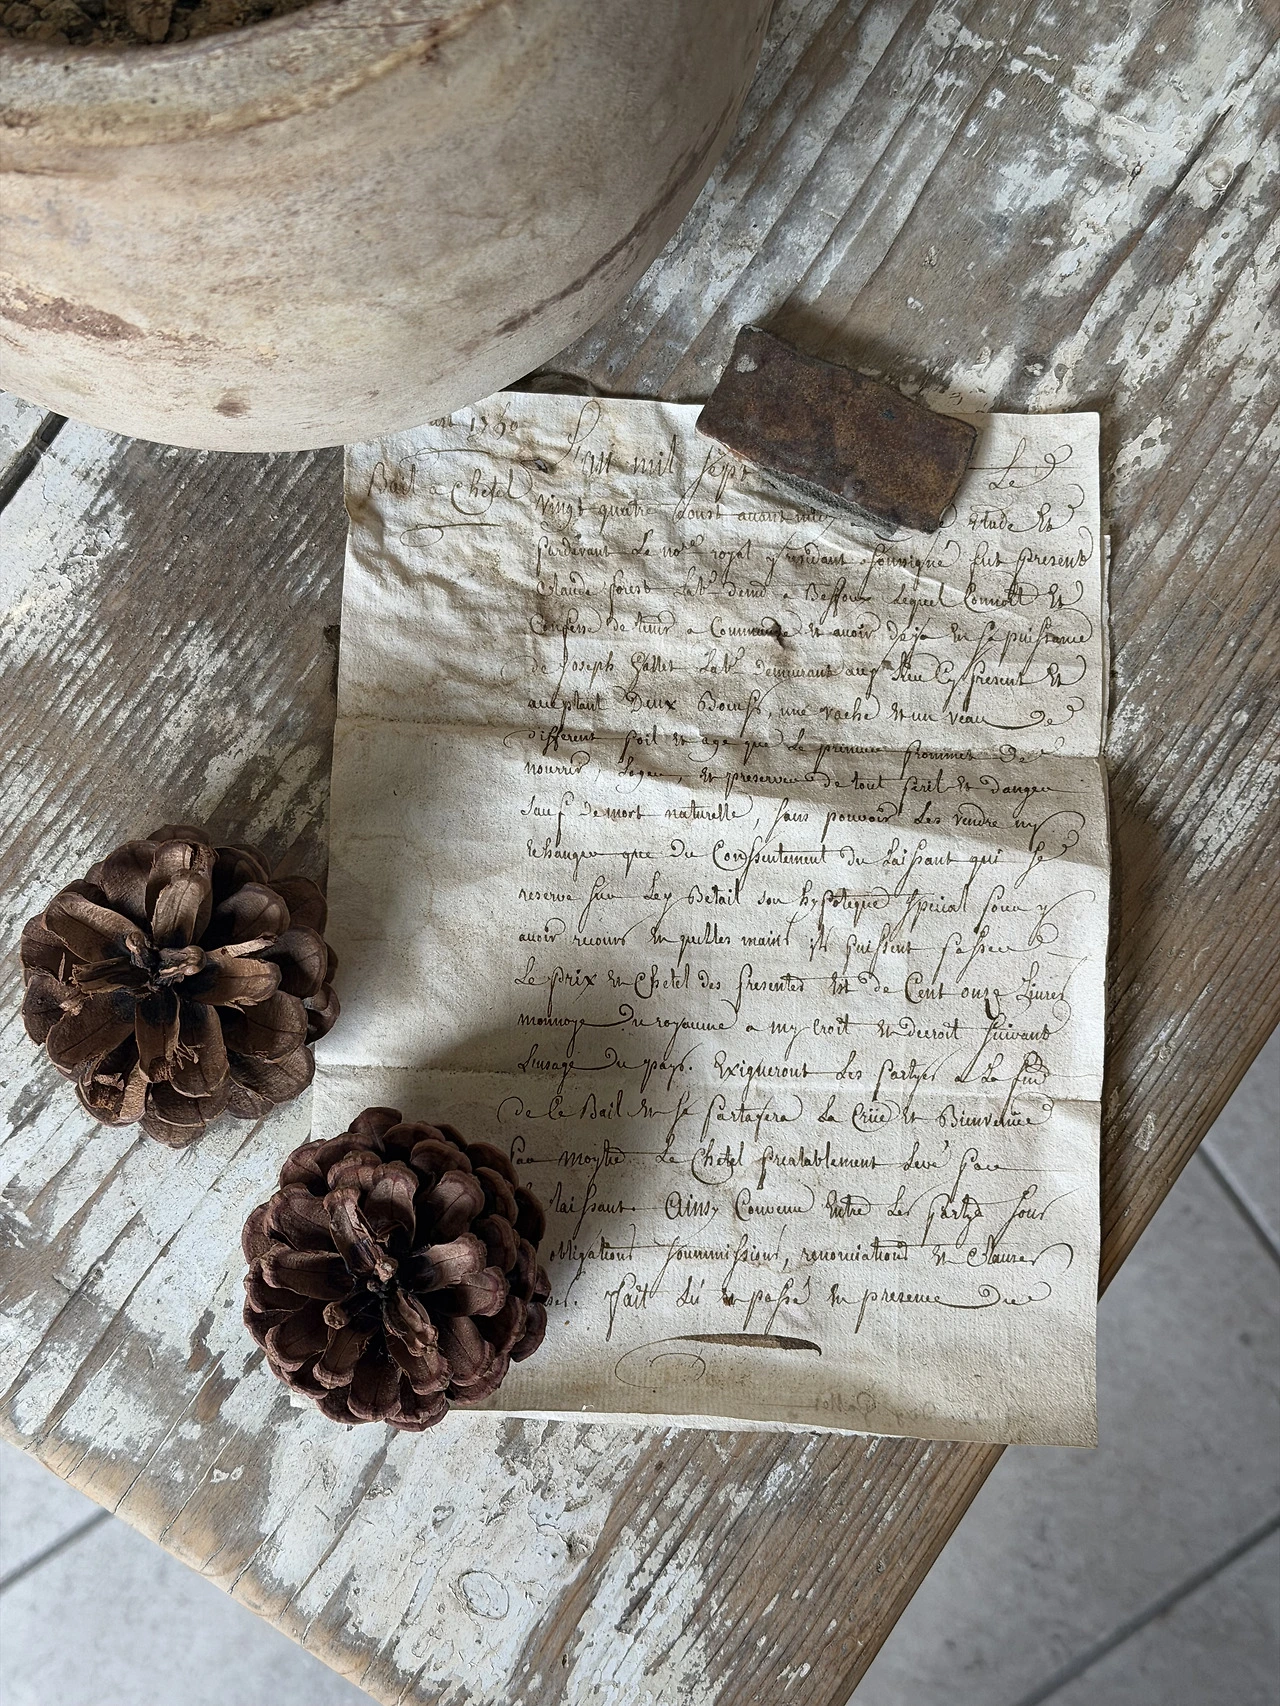 1760
Bail a Chetel
L'an mil sept Le
vingt quatre aoust avant midy etude Et
pardevant Le no.re royal y residant soussigné fut present
Claude forest Lab.r demt a Bessoux Lequel Connoît Et
Confesse de tenir a Commande Et avoir deja En sa puissance
de joseph Gallet Lab.r demeurant aud. Lieu Cy present Et
acceptant Deux Bœufs, une vache Et un veau De
different poil Et age que Le premier promet De
nourrir, Loger, Et preserver de tout peril Et danger
sauf De mort naturelle, sans pouvoir Les vendre ny
Echanger que du Consentement du Laissant qui se
reserve sur Ley Betail son hypoteque special pour y
avoir recours En quelles mains ils puissent passer
Le prix En Chetel des presentes Est de Cent onze Livres
monnoye Du royaume a my Croit Et Decroit suivant
Lusage Du pays. Exigueront Les partyes a La fin
de Ce Bail Et se partagera La Crüe Et Bienvenüe
par moytié Le Chetel prealablement Levé par
laissant. Ainsy Convenu Entre Les partys sous
obligations soummissions, renonciations Et Clauses
Fait Lû Et passé En presence De
Gallet